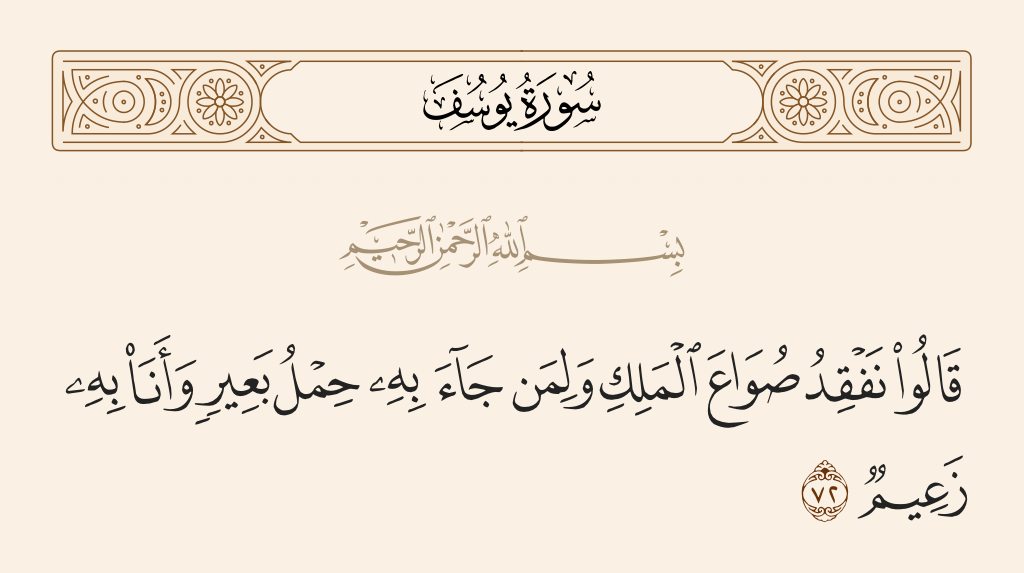 سُورَةُ يُوسُفَ
بِسْمِ ٱللَّهِ ٱلرَّحْمَٰنِ ٱلرَّحِيمِ
قَالُوا۟ نَفْقِدُ صُوَاعَ ٱلْمَلِكِ وَلِمَن جَآءَ بِهِۦ حِمْلُ بَعِيرٍ وَأَنَا۠ بِهِۦ
زَعِيمٌ ٧٢